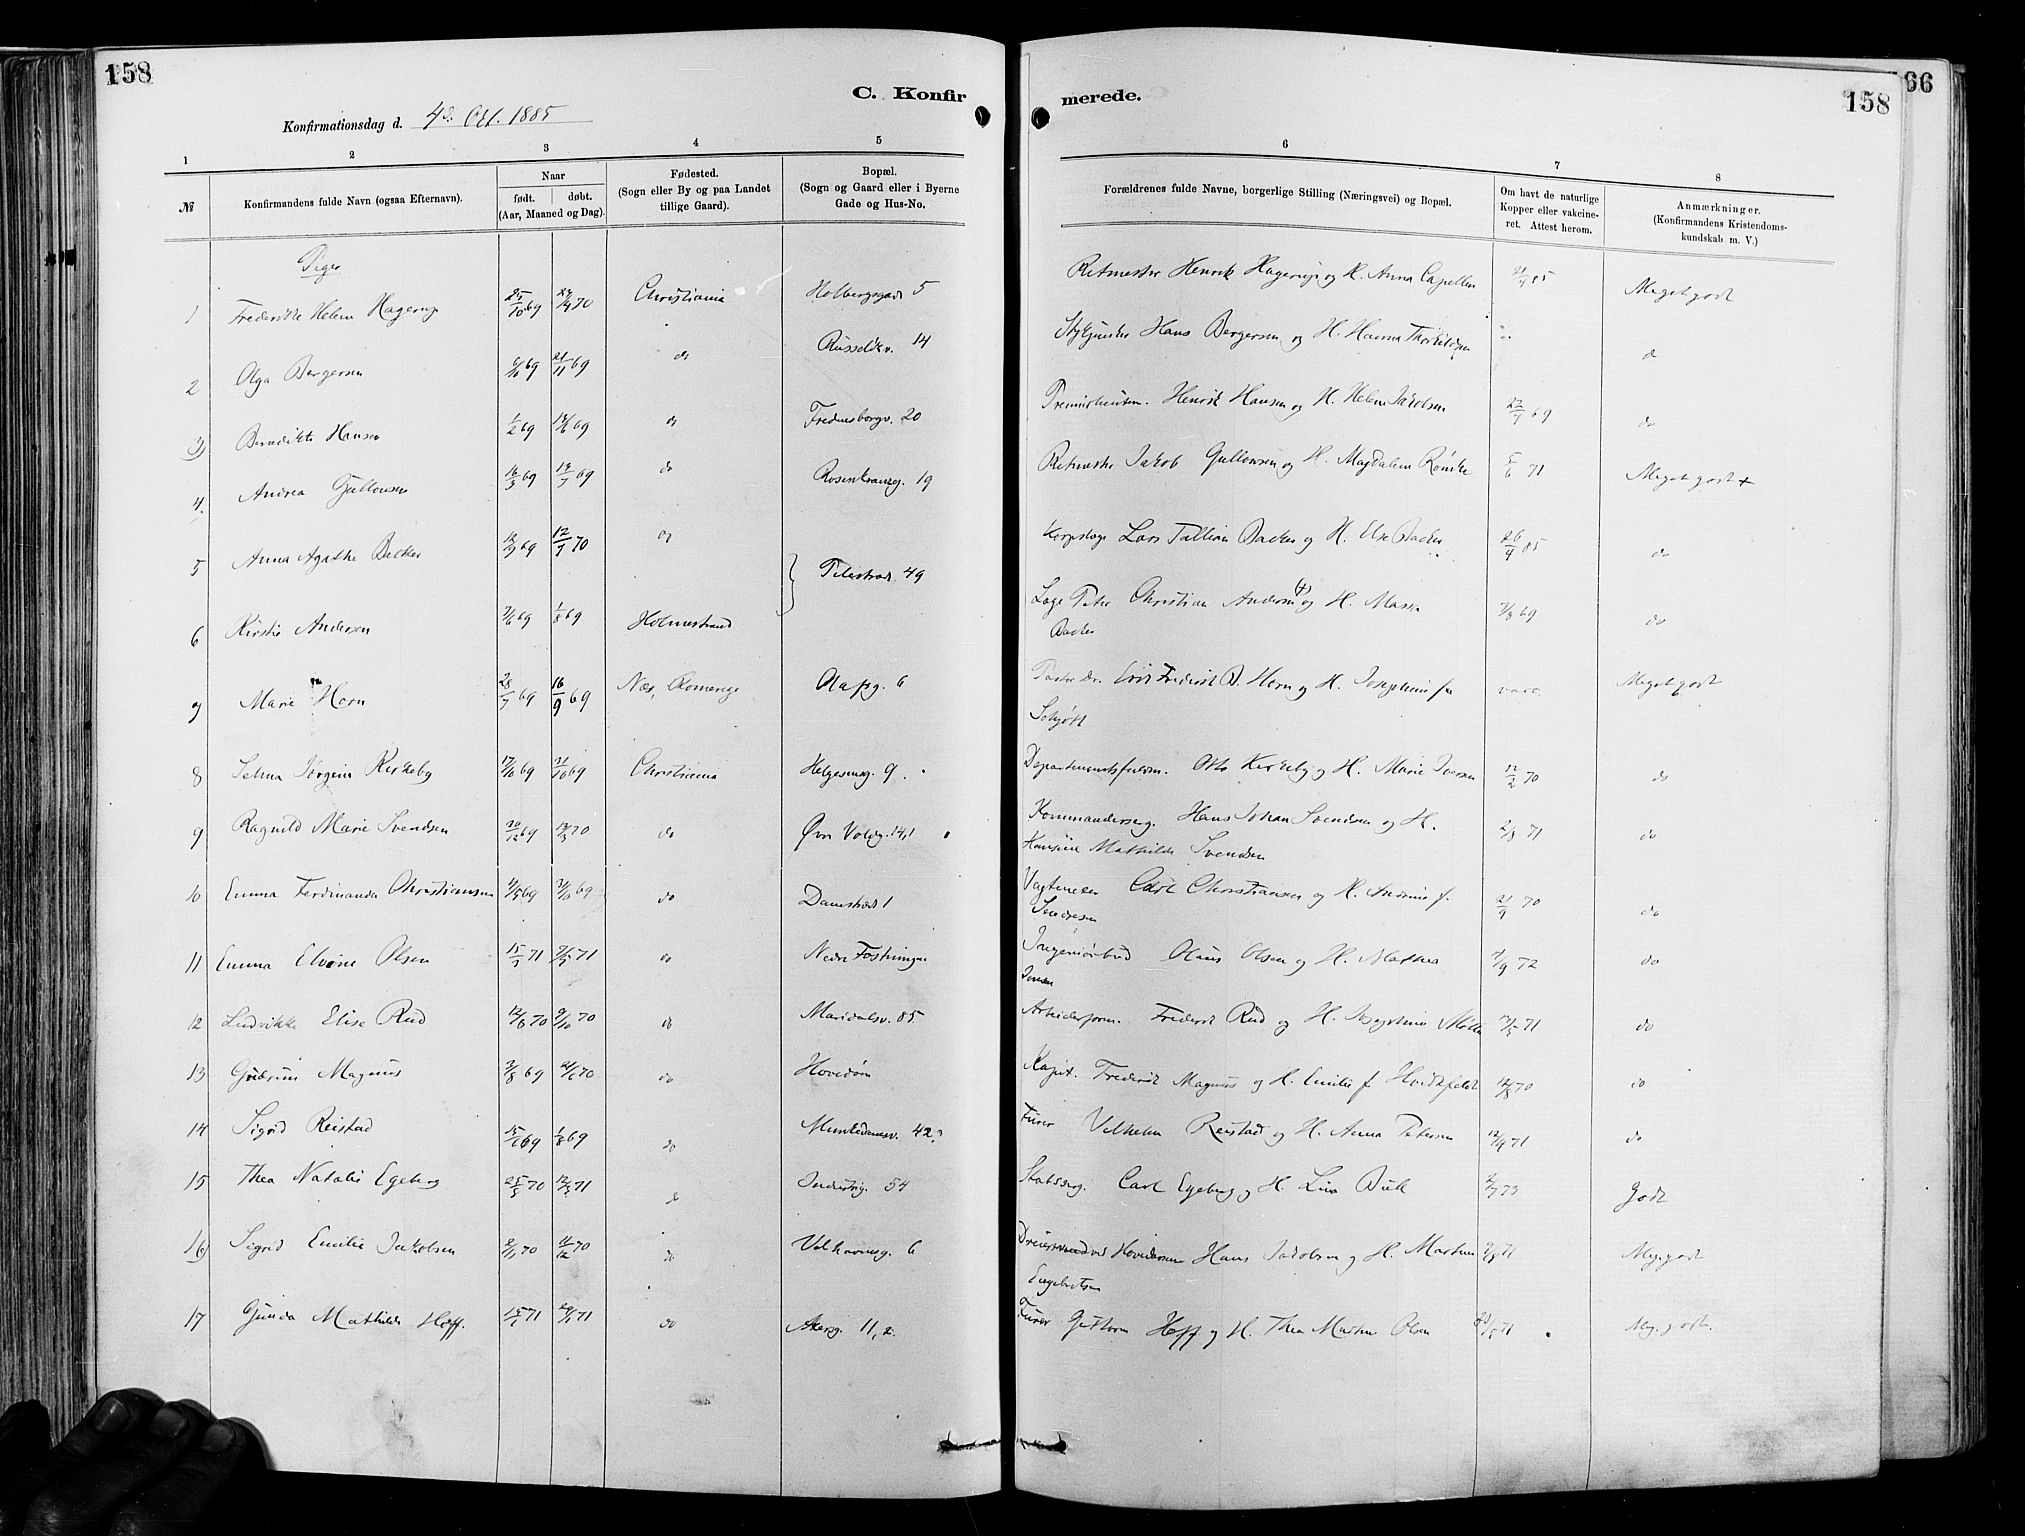 158
C. Konfir
merede.
158
66
Konfirmationsdag d. 4de Okt. 1885
1 2 3 4 5 6 7 8
№
Konfirmandens fulde Navn (ogsaa Efternavn).
Naar
født. døbt.
(Aar, Maaned og Dag).
Fødested.
(Sogn eller By og paa Landet
tillige Gaard).
Bopæl.
(Sogn og Gaard eller i Byerne
Gade og Hus-No.
Forældrenes fulde Navne, borgerlige Stilling (Næringsvei) og Bopæl.
Om havt de naturlige
Kopper eller vakcine-
ret. Attest herom.
Anmærkninger.
(Konfirmandens Kristendoms-
kundskab m. V.)
Piger
1 Frederikke Helene Hagerup 25/10 69 Christiania Holbergsgade 5 Ritmester Henrik Hagerup og H. Anna Capellen 21/9 85 Meget godt
2 Olga Bergersen 6/10 69 21/11 69 do Russeløkv. 14 Hans Bergersen og H. Hanna Thorkildsen do
3) Benedikte Hansen 1/2 69 13/6 69 do Fredensborgv. 20 Premierleutn. Henrik Hansen og H. Helene Jakobsen 22/7 69 do
4. Andrea Gullowsen 16/3 69 19/7 69 do Rosenkrantzg. 19 Ritmester Jakob Gullowsen og H. Magdalene 5/6 71 Meget godt +
5 Anna Agathe Backer 12/7 70 do Pilestræd. 49 Korpslæge Lars Backer og H. Else Backer 26/4 85 do
6 Kirstie Andersen 7/6 69 1/8 69 Holmestrand Læge Peter Christian Andersen og H. Massa
Backer 7/8 69 do
9 Marie Horn 28/7 69 16/9 69 Næs, Romerige Olafsg. 6 Pastor Dr. Erik Frederik B. Horn og H. Josephine f.
Schjøtt vacc. Meget godt
8 Selma Jørgine Kirkeby 17/10 69 31/10 69 Christiania Helgesensg. 9. Departementsfuldm. Otto Kirkeby og H. Marie Iversen 12/2 70 do
9 Ragnild Marie Svendsen 30/12 69 13/3 70 do Øvre Voldg. 14,1 Kommandersrg. Hans Johan Svendsen og H.
Mathilde Svendsen 2/8 71 do
10 Emma Ferdinanda Christiansen 4/5 69 31/10 69 do Damstræde 1 Vagtmester Carl Christiansen og H. Andrine f.
21/9 70 do
11 Emma Elvine Olsen 15/3 71 71 do Nedre Fæstningen Ingeniørbud Olaus Olsen og H. Mathea
Jensen 7/9 72 do
12 Ludvikke Elise Rud 12/8 70 9/10 70 do Maridalsv. 85 Arbeiderform. Frederik Rud og H. Josephine Møller 71 do
13 Gudrun Magnus 3/8 69 24/6 70 do Hovedøen Kapit. Frederik Magnus og H. Emilie f. Hvidtfeldt 12/8 70 do
14 Sigrid Reistad 15/6 69 1/8 69 do Munkedamsv. 42,2 Furer Vilhelm Reistad og H. Anna Petersen 12/9 71 do
15 Thea Natalie Egeberg 25/8 70 12/3 71 do Industrig. 54 Stabssrg. Carl Egeberg og H. Lina Bull 73 Godt
16) Sigrid Emilie Jakobsen 8/1 70 11/12 70 do Velhavensg. 6 Hans Jakobsen og H. Martine
Engebretsen 9/8 71 Meg. godt
17 Gunda Mathilde Hoff. 15/1 71 29/1 71 do Akersg. 11, 2. Furer Guttorm Hoff og H. Thea Martine Olsen 71 Meg. godt.